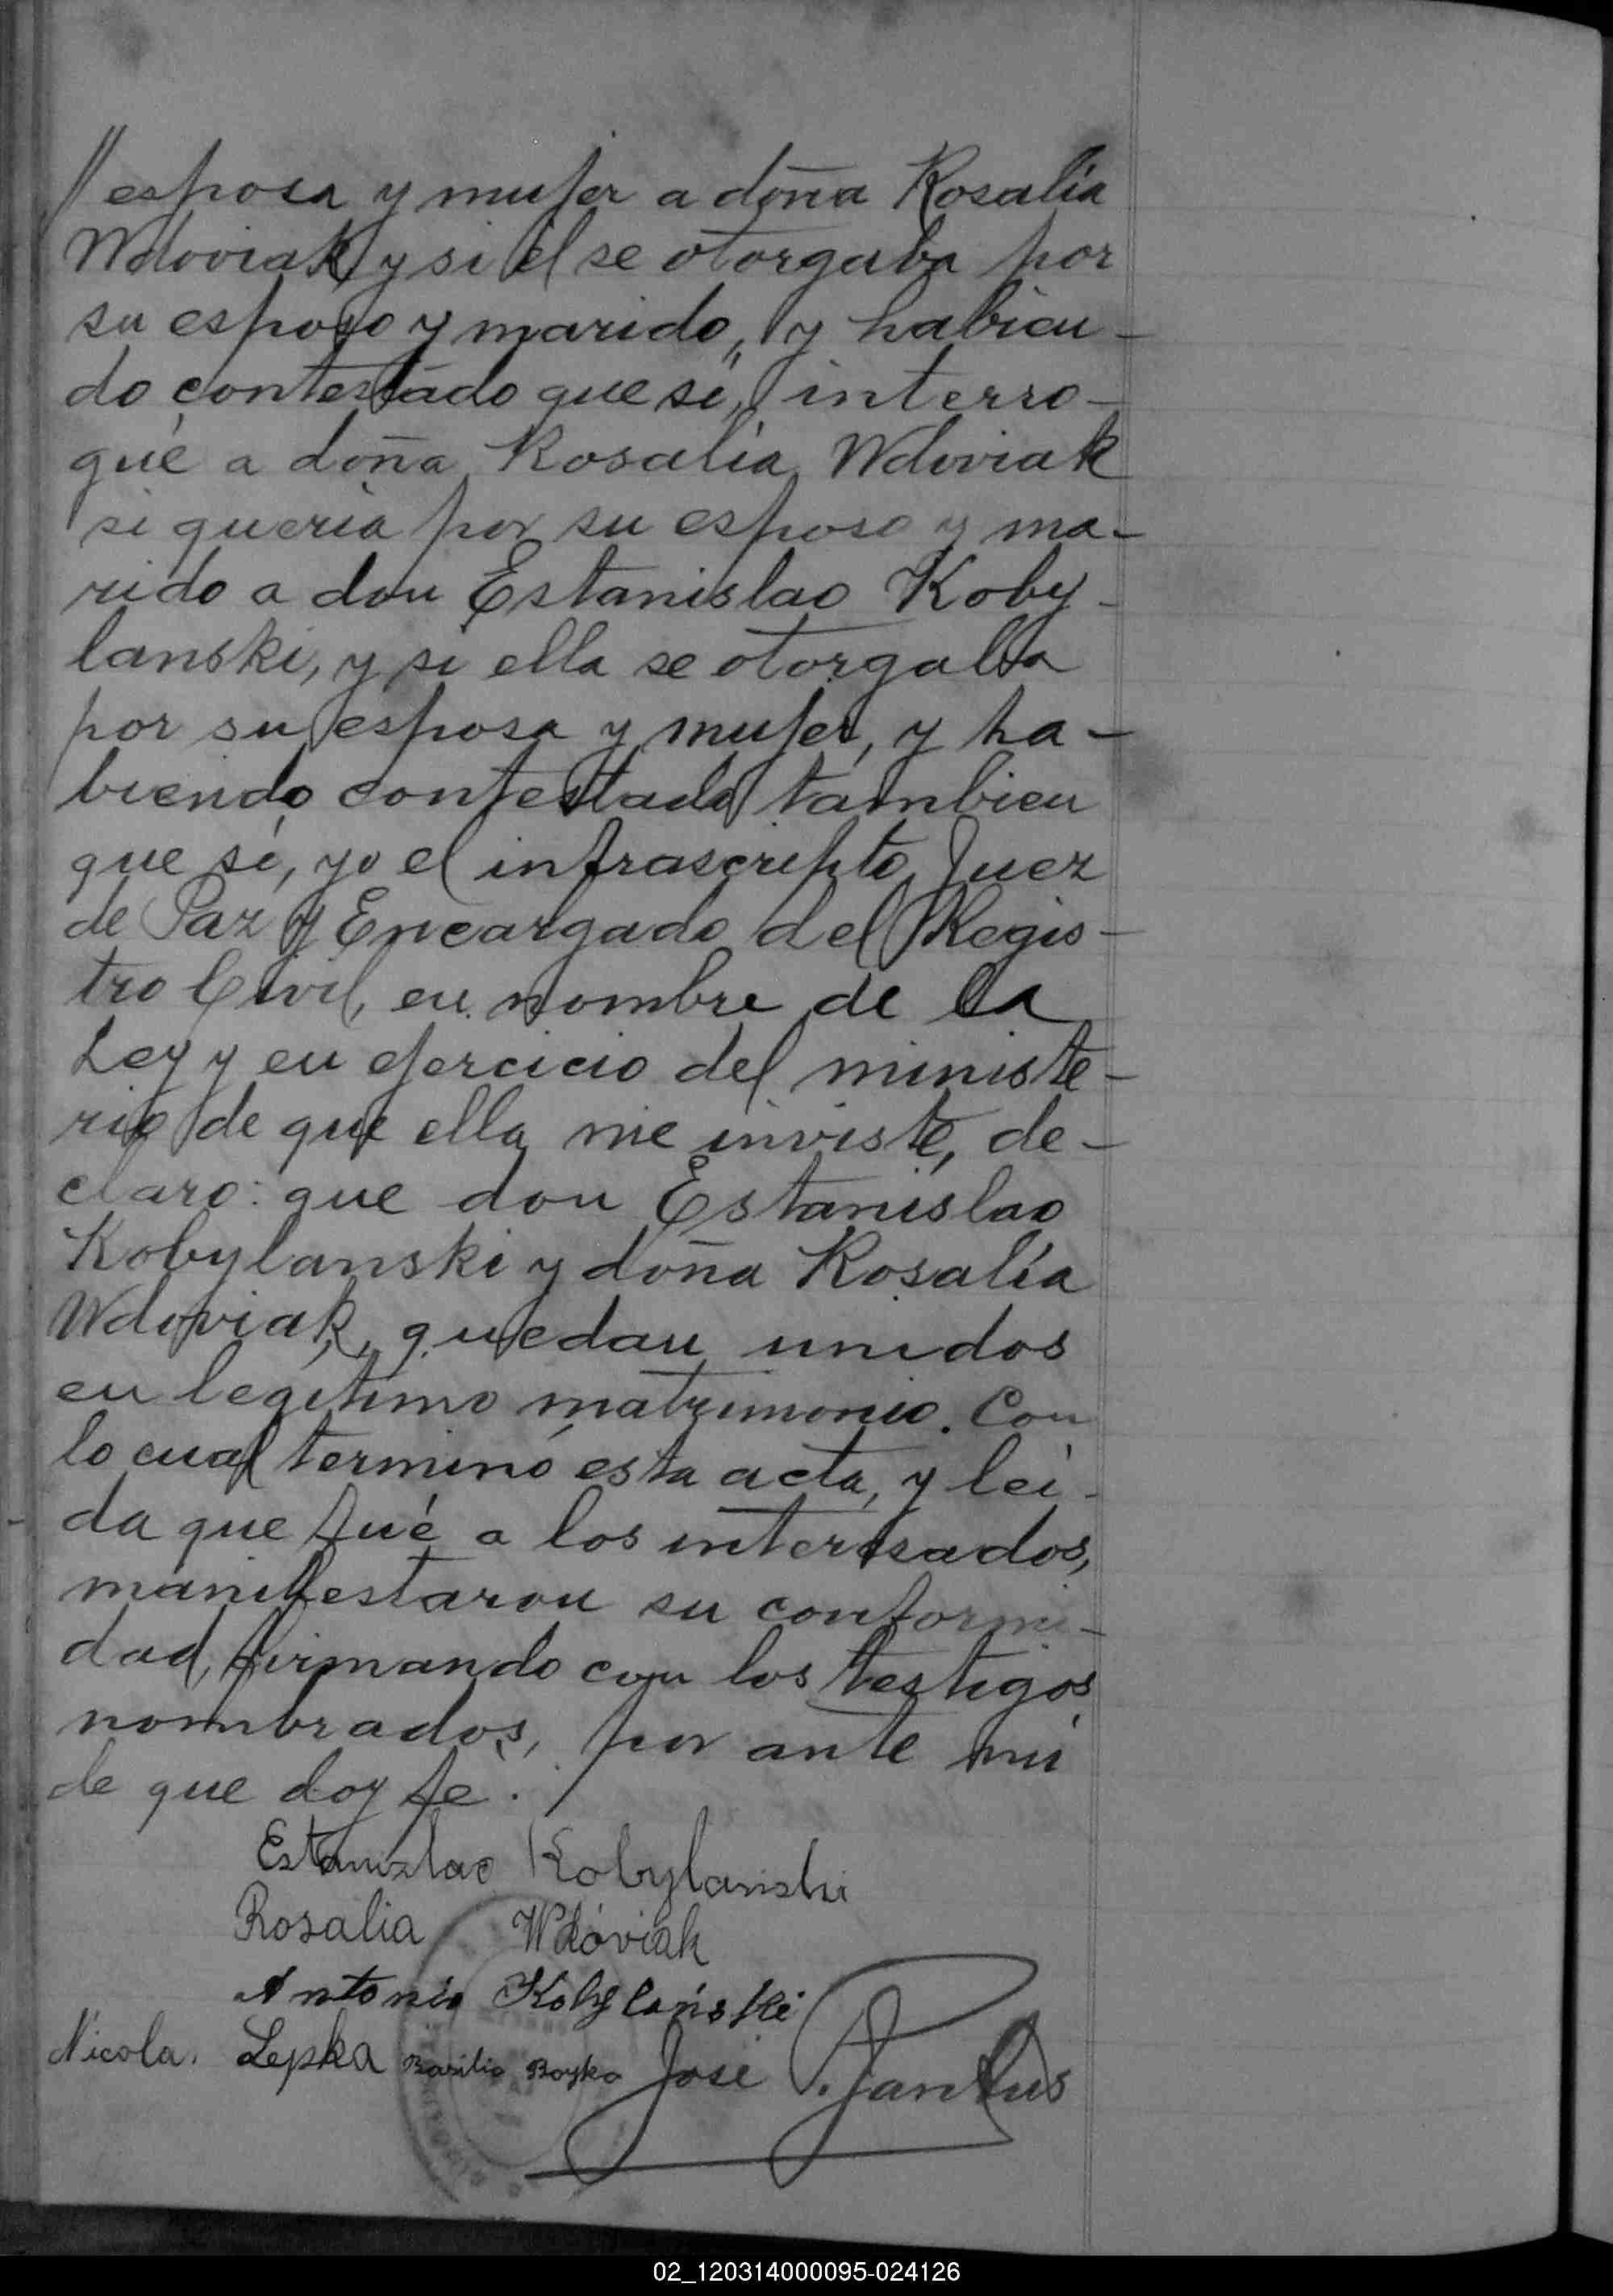 // esposa y mujer a doña Rosalía
Wdoviak y si él se otorgaba por
su esposo y marido, y habien-
do contestado que "sí", interro-
gué a doña Rosalía Wdoviak
si quería por su esposo y ma-
rido a don Estanislao Koby-
lanski, y si ella se otorgaba
por su esposa y mujer, y ha-
biendo contestado tambien
que sí, yo el infrascripto Juez
de Paz y Encargado del Regis-
tro Civil, en nombre de la
Ley y en ejercicio del ministe-
rio de que ella me inviste, de-
claro: que don Estanislao
Kobylanski y doña Rosalía
Wdoviak, quedan unidos
en legítimo matrimonio. Con
lo cual terminó esta acta, y leí-
da que fué a los interesados,
manifestaron su conformi-
dad, firmando con los testigos
nombrados, por ante mí
de que doy fe.
Estanizlao Kobylanski
Rosalia Wdóviak
Antonio Kobylański
Nicola. Lepka Basilio Boyko José
02_120314000095-024126